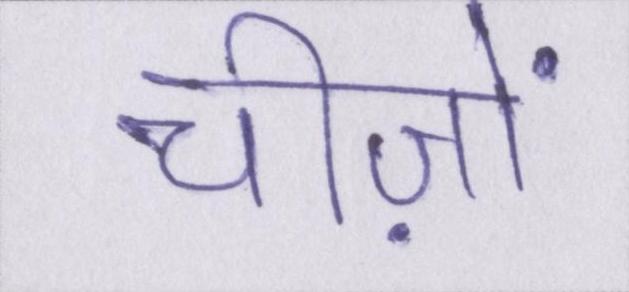 चीज़ों